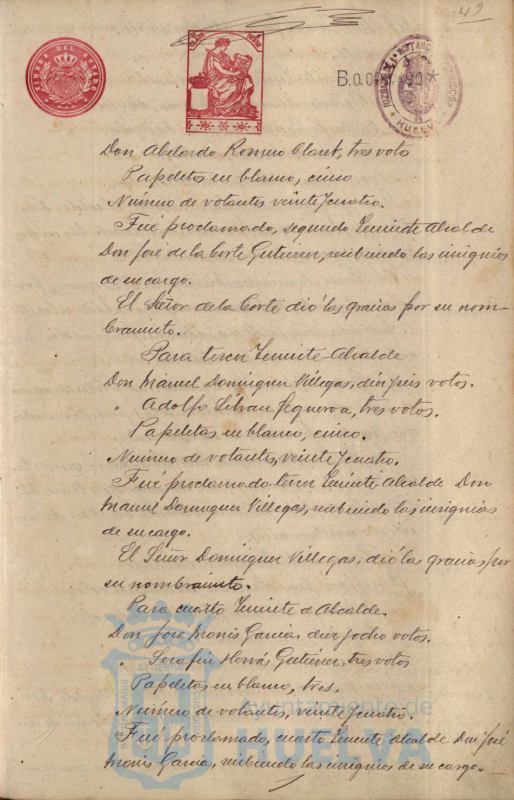 49
TIMBRE DEL ESTADO
JUZGADO DE 1ª INSTANCIA
HUELVA
Don Abelardo Romero Claret, tres votos
Papeletas en blanco, cinco
Número de votantes veinte y cuatro.
Fué proclamado, segundo Teniente Alcalde
Don José de la Corte Gutierrez, recibiendo las insignias
de su cargo.
El Señor de la Corte dió las gracias por su nom-
bramiento.
Para tercer Teniente-Alcalde
Don Manuel Dominguez Villegas, diez y seis votos.
" Adolfo Figueroa, tres votos.
Papeletas en blanco, cinco.
Número de votantes, veinte y cuatro.
Fué proclamado tercer Teniente Alcalde Don
Manuel Dominguez Villegas, recibiendo las insignias
de su cargo.
El Señor Dominguez Villegas, dió las gracias por
su nombramiento.
Para cuarto Teniente de Alcalde.
Don José Monis Garcia, diez y ocho votos.
" Serafin Gutierrez, tres votos
Papeletas en blanco, tres.
Número de votantes, veinte y cuatro.
Fué proclamado, cuarto Teniente Alcalde Don José
Monis Garcia, recibiendo las insignias de su cargo.
Ayuntamiento de
HUELVA